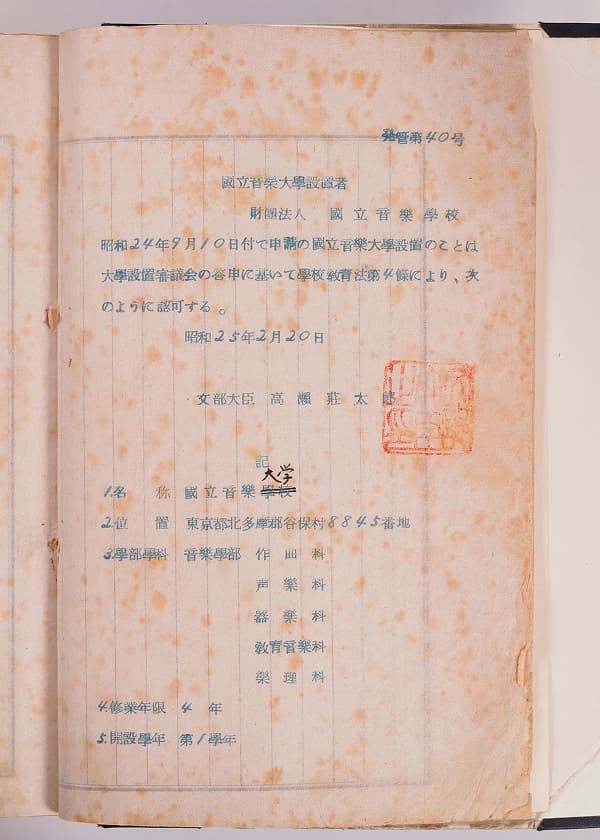 発管第40号
國立音樂大學設置者
財團法人 國立音樂學校
昭和24年9月10日付で申請の國立音樂大學設置のことは
大學設置審議会の答申に基いて學校教育法第4條により、次
のように認可する。
昭和25年2月20日
文部大臣 高瀬荘太郎
記
大学
1.名 称 國立音樂學校
2.位 置 東京都北多摩郡谷保村8845番地
3.學部學科 音樂學部 作曲科
声樂科
器樂科
教育音樂科
樂理科
4.修業年限 4年
5.開設學年 第1學年